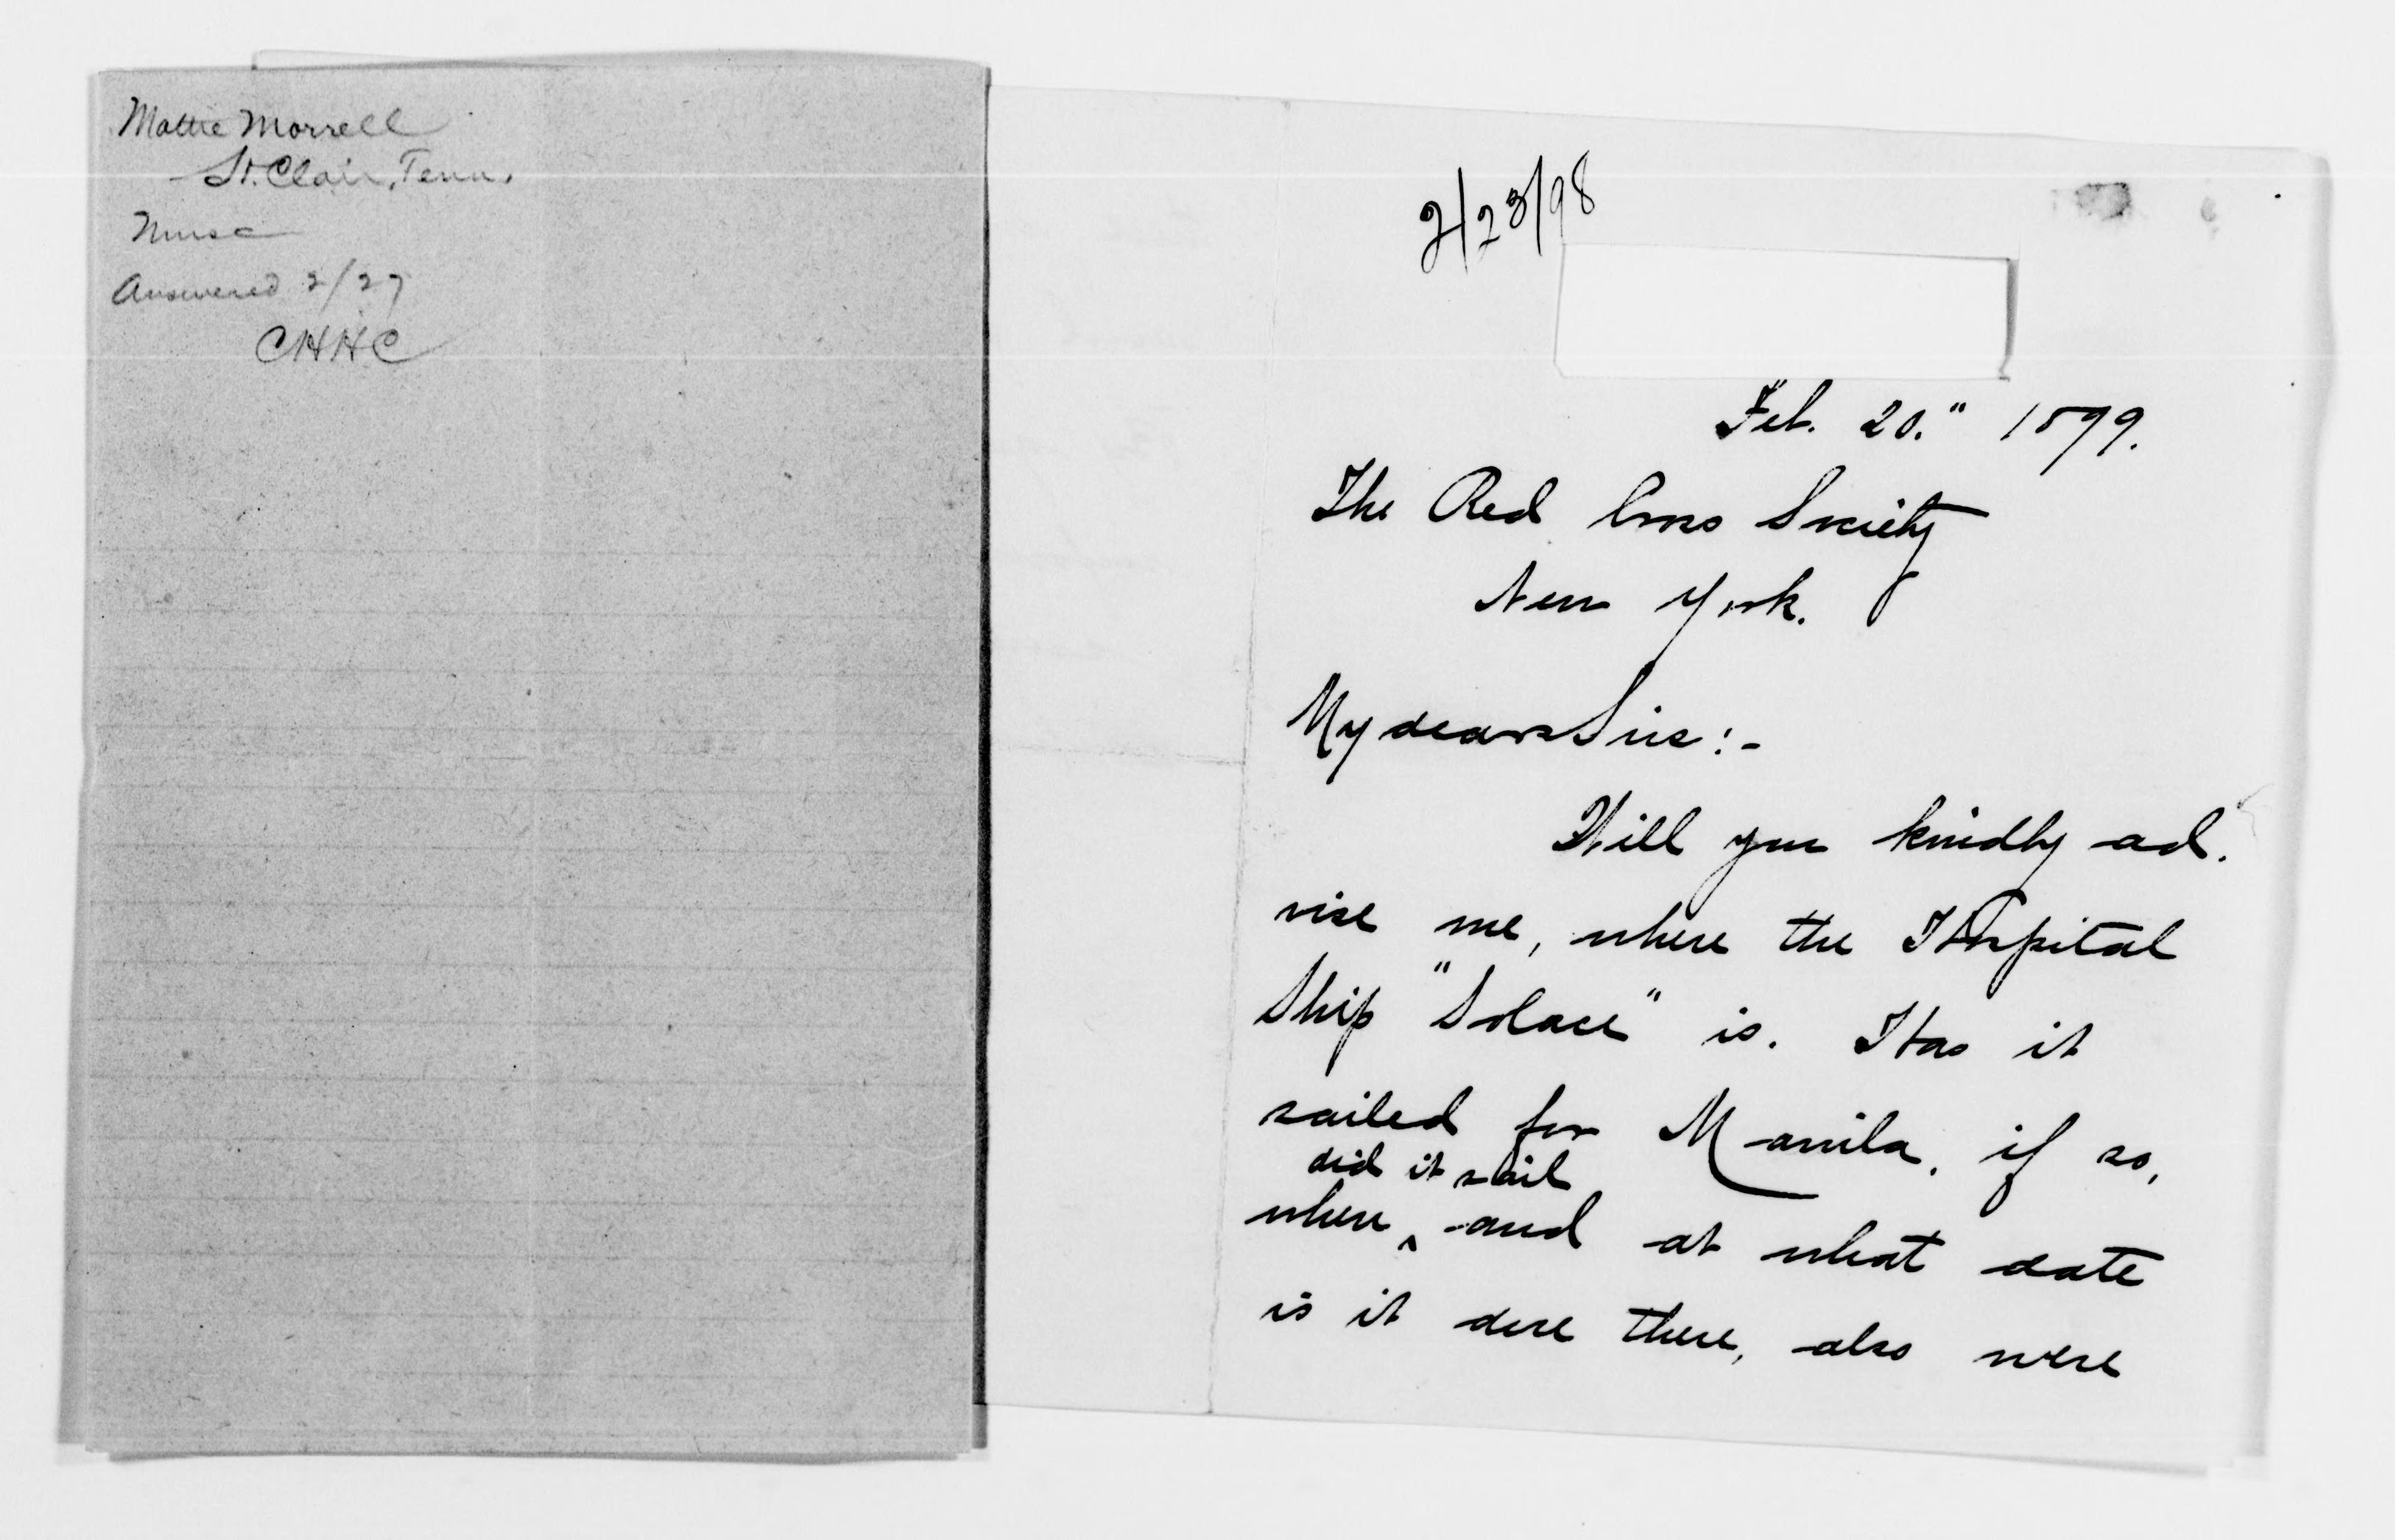 Mattie Morrell
St. Clair, Tenn.
Nurse
Answered 2/27
CHHC
2/23/98
Feb. 20." 1899.
The Red Cross Society
New York.
My dear Sirs:-
Will you kindly ad-
vise me, where the Hospital
Ship "Solace" is. Has it
sailed for Manila, if so,
did it sail
when ^ and at what date
is it due there, also were